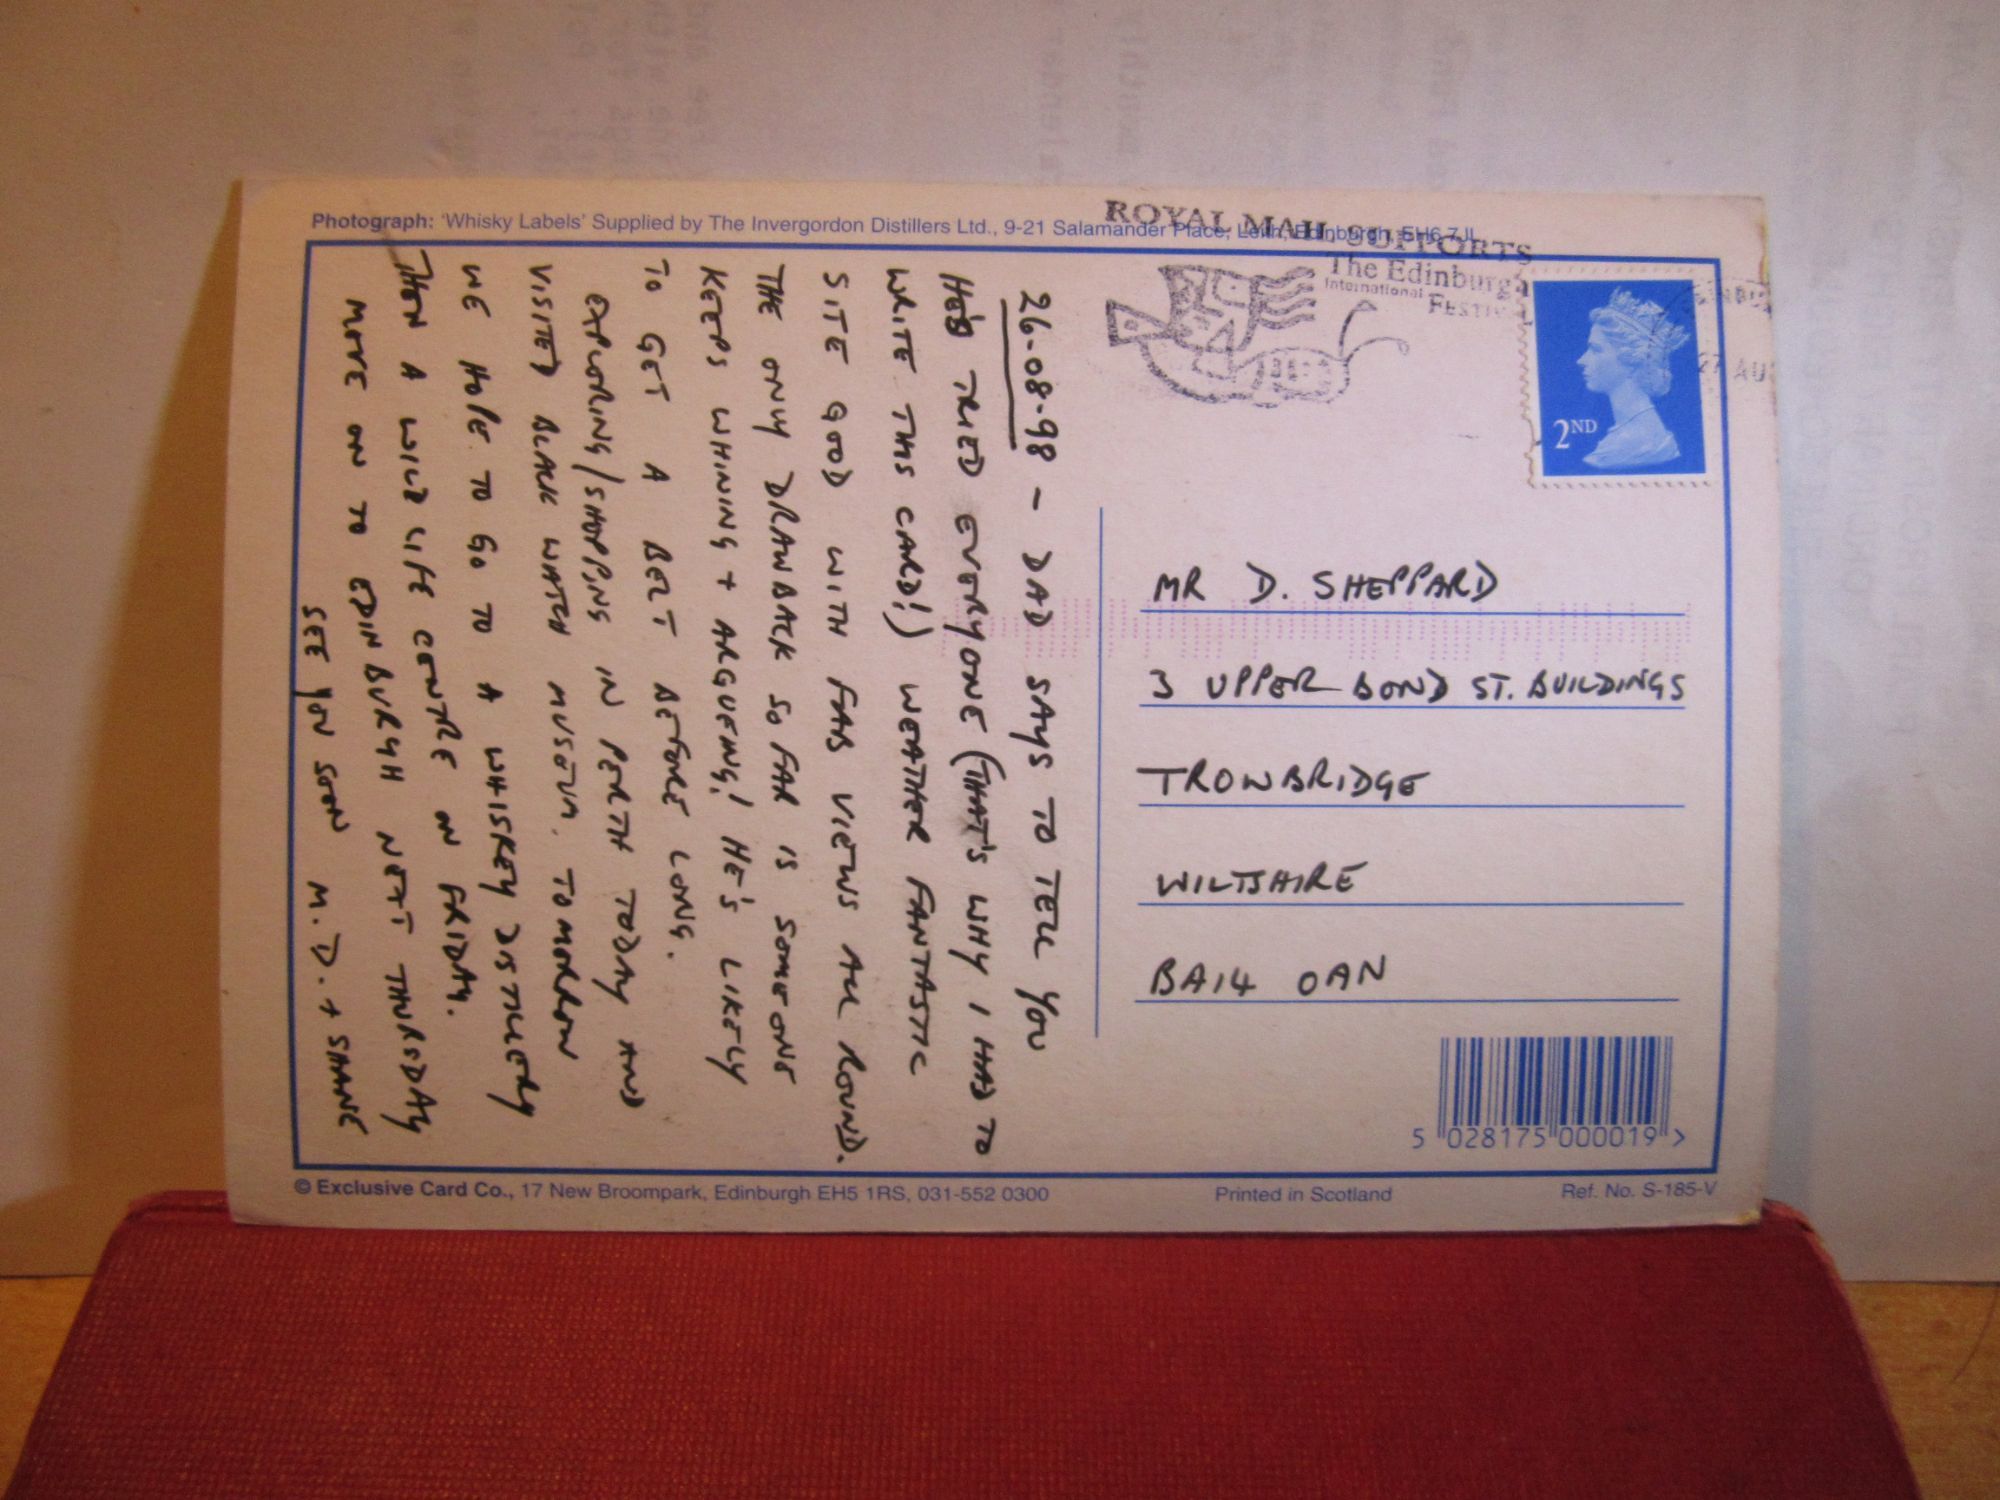 Photograph: 'Whisky Labels' Supplied by The Invergordon Distillers Ltd., 9-21 Salamander Place, Leith, Edinburgh EH6 7JL
ROYAL MAIL SUPPORTS
The Edinburgh
International
FESTIVAL
27 AU
2ND
26-08-98 - DAD SAYS TO TELL YOU
HE'S TRIED EVERYONE (THAT'S WHY I HAD TO
WRITE THIS CARD!) WEATHER FANTASTIC
SITE GOOD WITH FAB VIEWS ALL ROUND.
THE ONLY DRAWBACK SO FAR IS SOMEONE
KEEPS WHINING + ARGUEING! HE'S LIKELY
TO GET A BELT BEFORE LONG.
EXPLORING/SHOPPING IN PERTH TODAY AND
VISITED BLACK WATCH MUSEUM. TOMORROW
WE HOPE TO GO TO A WHISKEY DISTILLERY
THEN A WILD LIFE CENTRE ON FRIDAY.
MOVE ON TO EDINBURGH NEXT THURSDAY
SEE YOU SOON M. D. + SHANE
MR D. SHEPPARD
3 UPPER BOND ST. BUILDINGS
TROWBRIDGE
WILTSHIRE
BA14 OAN
5 028175 000019 >
© Exclusive Card Co., 17 New Broompark, Edinburgh EH5 1RS, 031-552 0300
Printed in Scotland
Ref. No. S-185-V